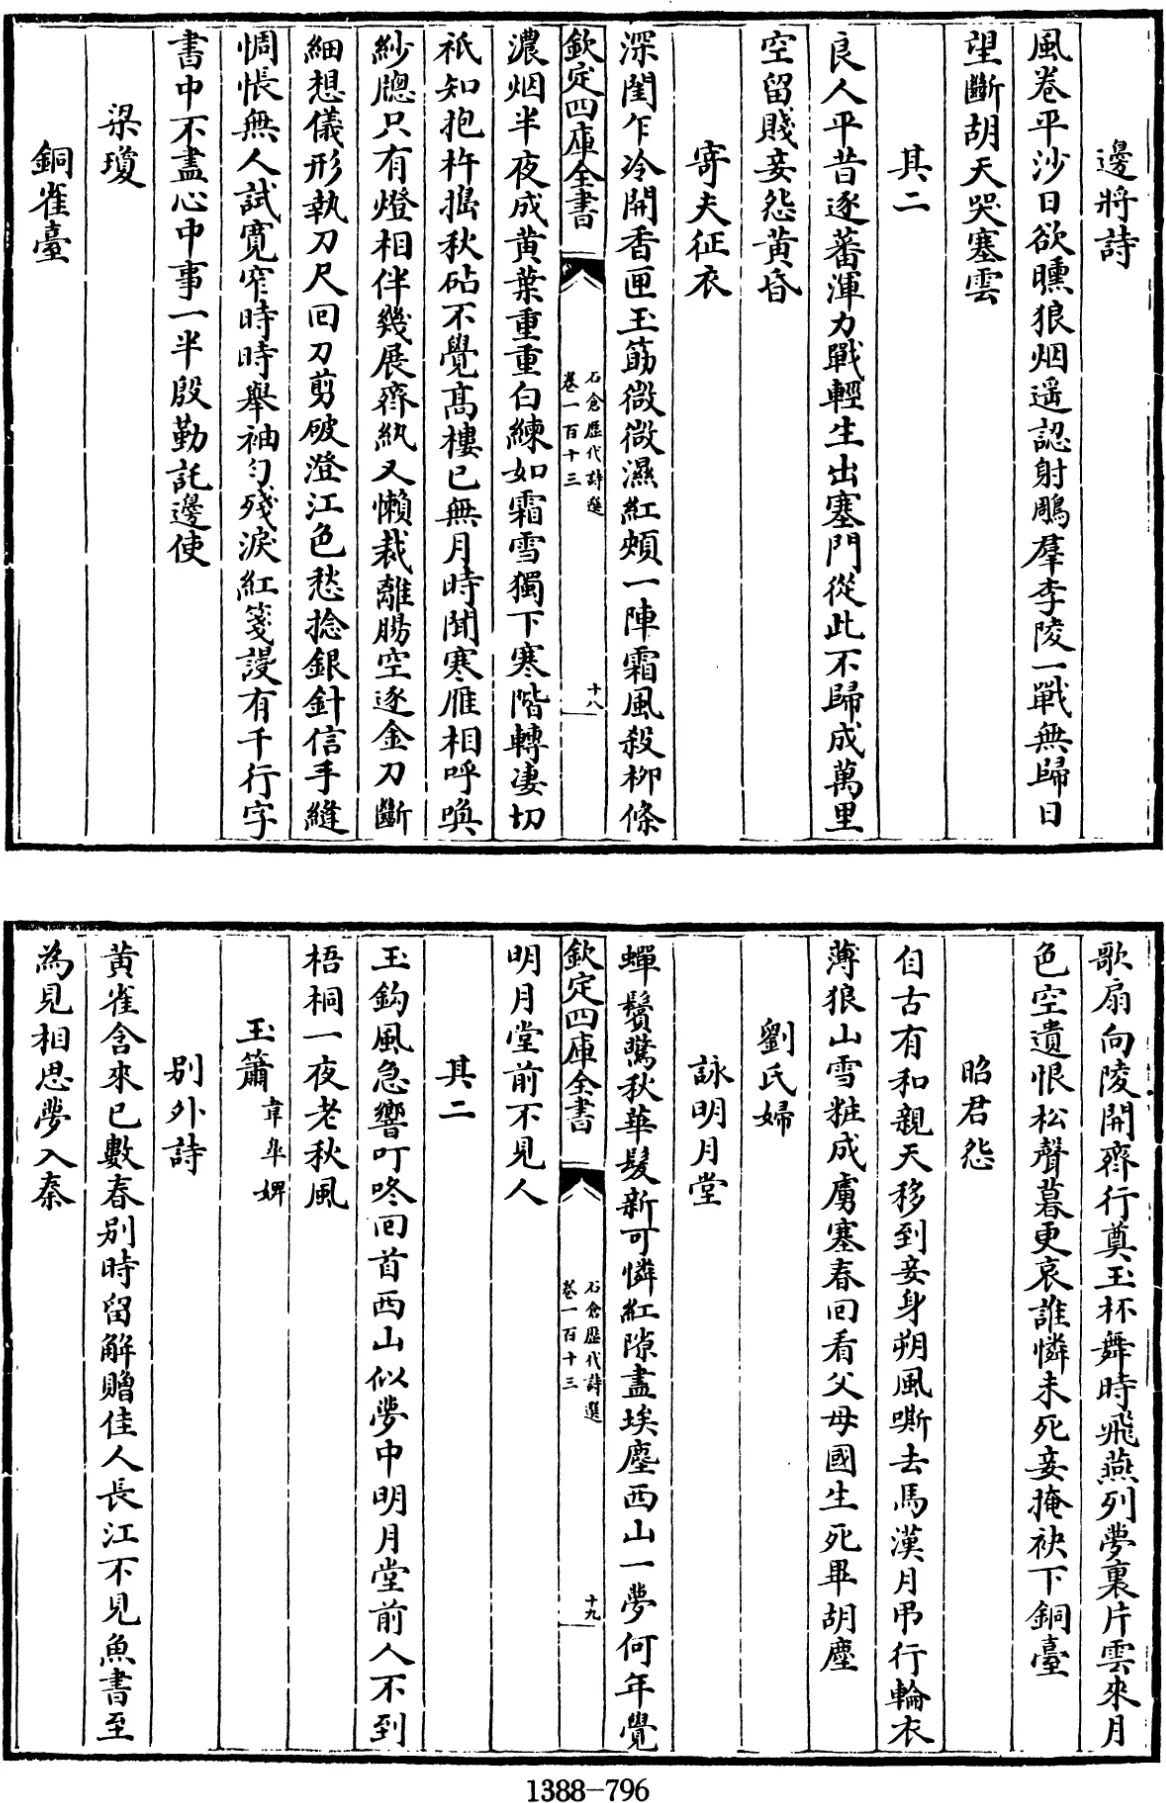 邊將詩
風卷平沙日欲曛狼烟遥認射鵰羣李陵一戰無歸日
望斷胡天哭塞雲
其二
良人平昔逐蕃渾力戰輕生出塞門從此不歸成萬里
空留賤妾怨黄昏
寄夫征衣
深閨乍冷開香匣玉筯微微濕紅頰一陣霜風殺柳條
欽定四庫全書
石倉歷代詩選
卷一百十三
十八
濃烟半夜成黄葉重重白練如霜雪獨下寒階轉凄切
祇知抱杵搗秋砧不覺髙樓已無月時聞寒雁相呼喚
紗牕只有燈相伴幾展齊紈又懶裁離腸空逐金刀斷
細想儀形執刀尺回刀剪破澄江色愁捻銀針信手縫
惆悵無人試寛窄時時舉袖匀殘淚紅箋謾有千行字
書中不盡心中事一半殷勤託邊使
梁瓊
銅雀臺
歌扇向陵開齊行奠玉杯舞時飛燕列夢裏片雲來月
色空遺恨松聲暮更哀誰憐未死妾掩袂下銅臺
昭君怨
自古有和親天移到妾身朔風嘶去馬漢月弔行輪衣
薄狼山雪粧成虜塞春回看父母國生死畢胡塵
劉氏婦
詠明月堂
蟬鬢驚秋華髮新可憐紅隙盡埃塵西山一夢何年覺
欽定四庫全書
石倉歷代詩選
卷一百十三
十九
明月堂前不見人
其二
玉鈎風急響叮咚回首西山似夢中明月堂前人不到
梧桐一夜老秋風
玉簫韋臯婢
别外詩
黄雀含來已數春别時留解贈佳人長江不見魚書至
為見相思夢入秦
1388-796